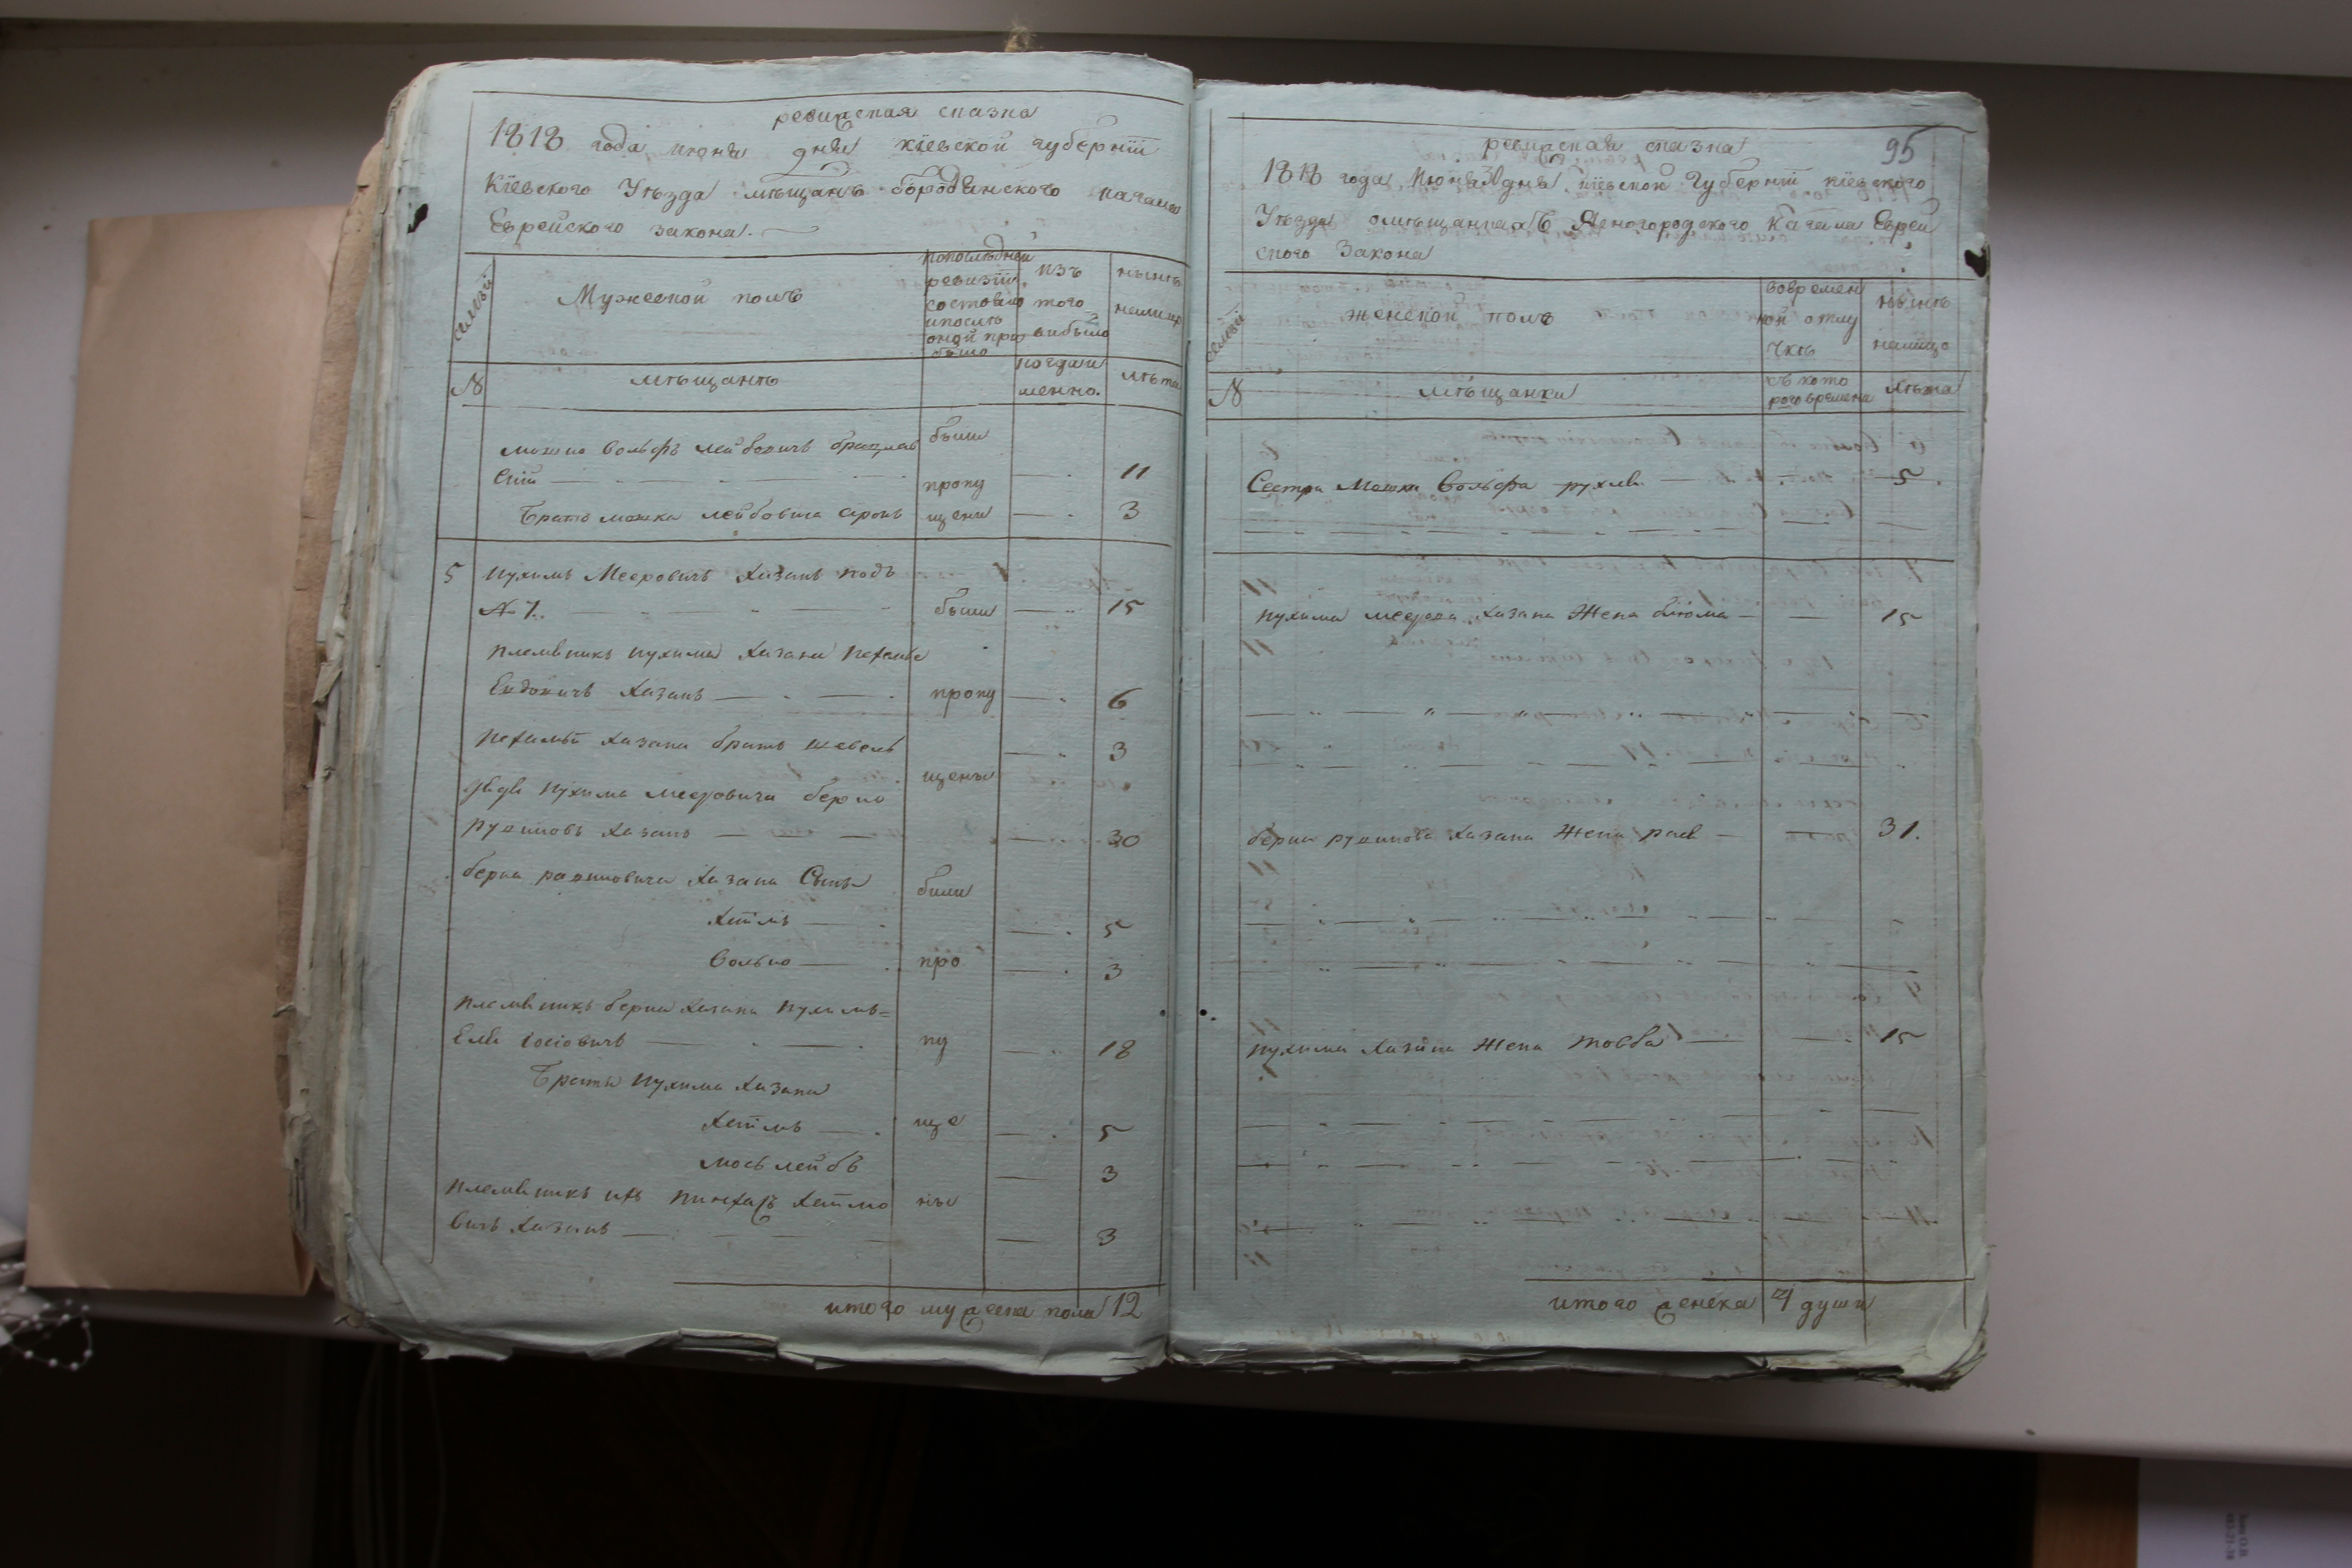 ревизская сказка
1818 года июня дня кіевской губерніи
Кіевского Уезда мещанъ бородянского кагала
Еврейского закона.
семьи
Мужеской полъ
по последней
ревизіи
состояло
и после
оной при
было
изъ
того
выбыло
ныне
налицо
№
мещане
когда и
менно.
лета
Мошко Вольфъ Лейбовичъ брацлав
скій
были
11
Братъ мошка лейбовича аронъ
пропу
щены
3
5
Нухимъ Мееровичъ Хазанъ подъ
№ 7.
были
15
племяникъ нухима Хазана Нехемье
Хазанъ
пропу
6
Нехемьи Хазана братъ шевель
3
щены
дядя Нухима Мееровича берко
Хазанъ
30
берка Хазана Сыны
были
Хаимъ
5
Волько
про
3
племяникъ берка Хазана Нухимъ=
Еля Іосіовичъ
пу
18
Браты Нухима Хазана
Хаимъ
ще
5
мось лейбъ
3
племяникъ ихъ пинхасъ Хаимо
вичъ Хазанъ
ны
3
итого мужеска пола 12
95
ревизская сказка
1818 года Июня 30 дня кіевской Губерніи кіевского
Уезда о мещанкахъ Ясногородского Кагала Еврей
ского Закона
семьи
женской полъ
во времен
ной отлу
чке
ныне
налицо
№
мещанки
съ кото
рого времени
Лета
Сестра Мошки Вольфа рухля
5
Нухима меерова Хазана Жена блюма
15
берка Хазана Жена рася
31.
Нухима Хазана Жена товба
15
итого женска 4 души